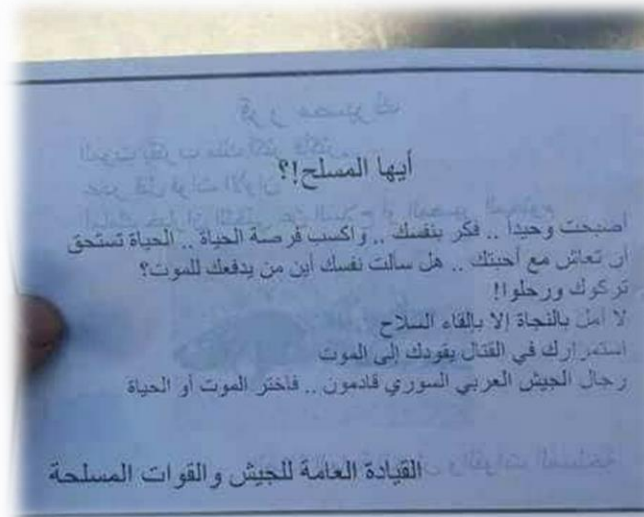 أيها المسلح!؟
أصبحت وحيدا .. فكر بنفسك .. واكسب فرصة الحياة .. الحياة تستحق
أن تعاش مع أحبتك .. هل سالت نفسك أين من يدفعك للموت؟
تركوك ورحلوا!
لا أمل بالنجاة إلا بإلقاء السلاح
استمرارك في القتال يقودك إلى الموت
رجال الجيش العربي السوري قادمون .. فاختر الموت أو الحياة
القيادة العامة للجيش والقوات المسلحة